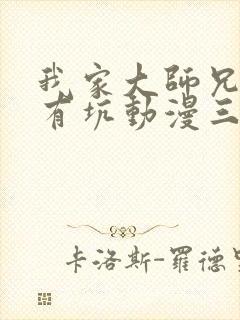 我家大師兄
有坑動漫三
卡洛斯-羅德里